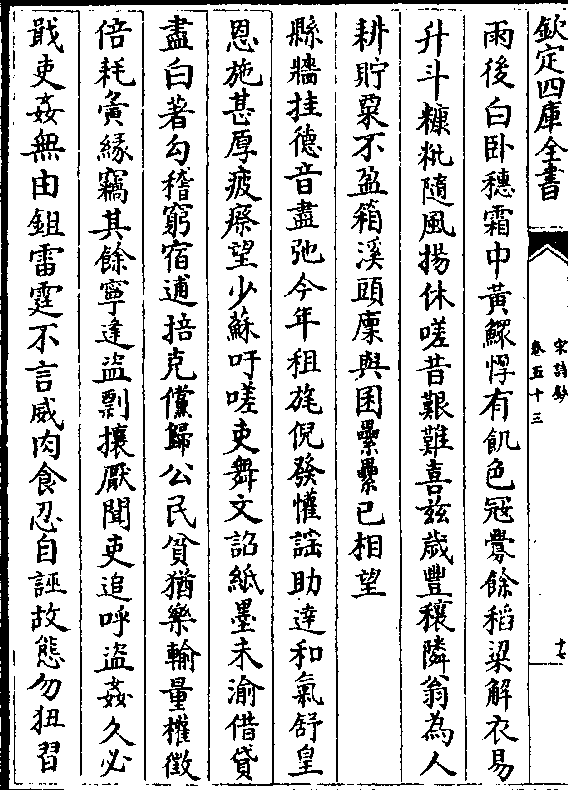 欽定四庫全書
宋詩鈔
卷五十三
雨後白卧穗霜中黄鰥惸有飢色冠㸑餘稻粱解衣易
升斗糠籺隨風揚休嗟昔艱難喜兹歲豐穰隣翁為人
耕貯粟不盈箱溪頭廩與囷纍纍已相望
縣牆挂德音盡弛今年租旄倪發懽謡助達和氣舒皇
恩施甚厚疲瘵望少蘇吁嗟吏舞文詔紙墨未渝借貸
盡白著勾稽窮宿逋掊克儻歸公民貧猶樂輸量權徵
倍耗夤緣竊其餘寧逢盗剽攘厭聞吏追呼盗姦久必
戢吏姦無由鉏雷霆不言威肉食忍自誣故態勿狃習